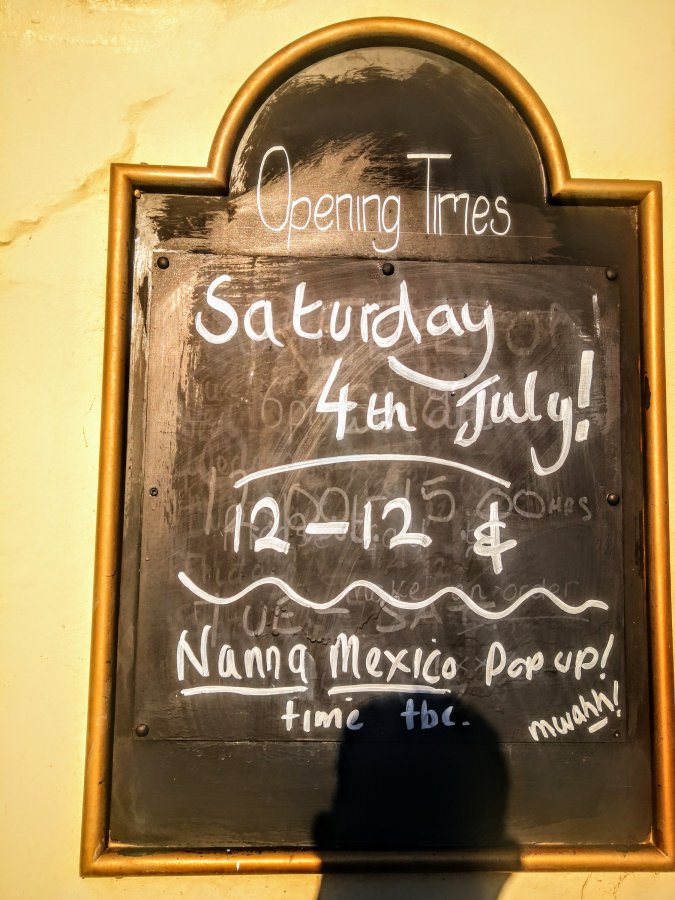 Opening Times
Saturday
4th July!
12-12 &
Nanna Mexico Pop up!
time tbc.
mwahh!